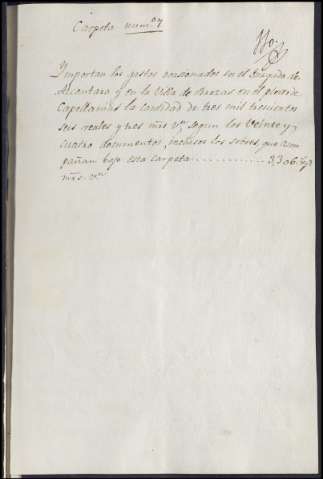 Carpeta num.º 7
Ymportan los gastos ocasionados en el
Alcantara y en la Villa de Brozas en el
Capellanias la cantidad de tres mil trecientos
seis reales y tres mrs. v.n segun los veinte y
cuatro documentos, inclusos los sobres, que acom
pañan bajo esta carpeta............3,306. r.s y 3
mrs. v.n